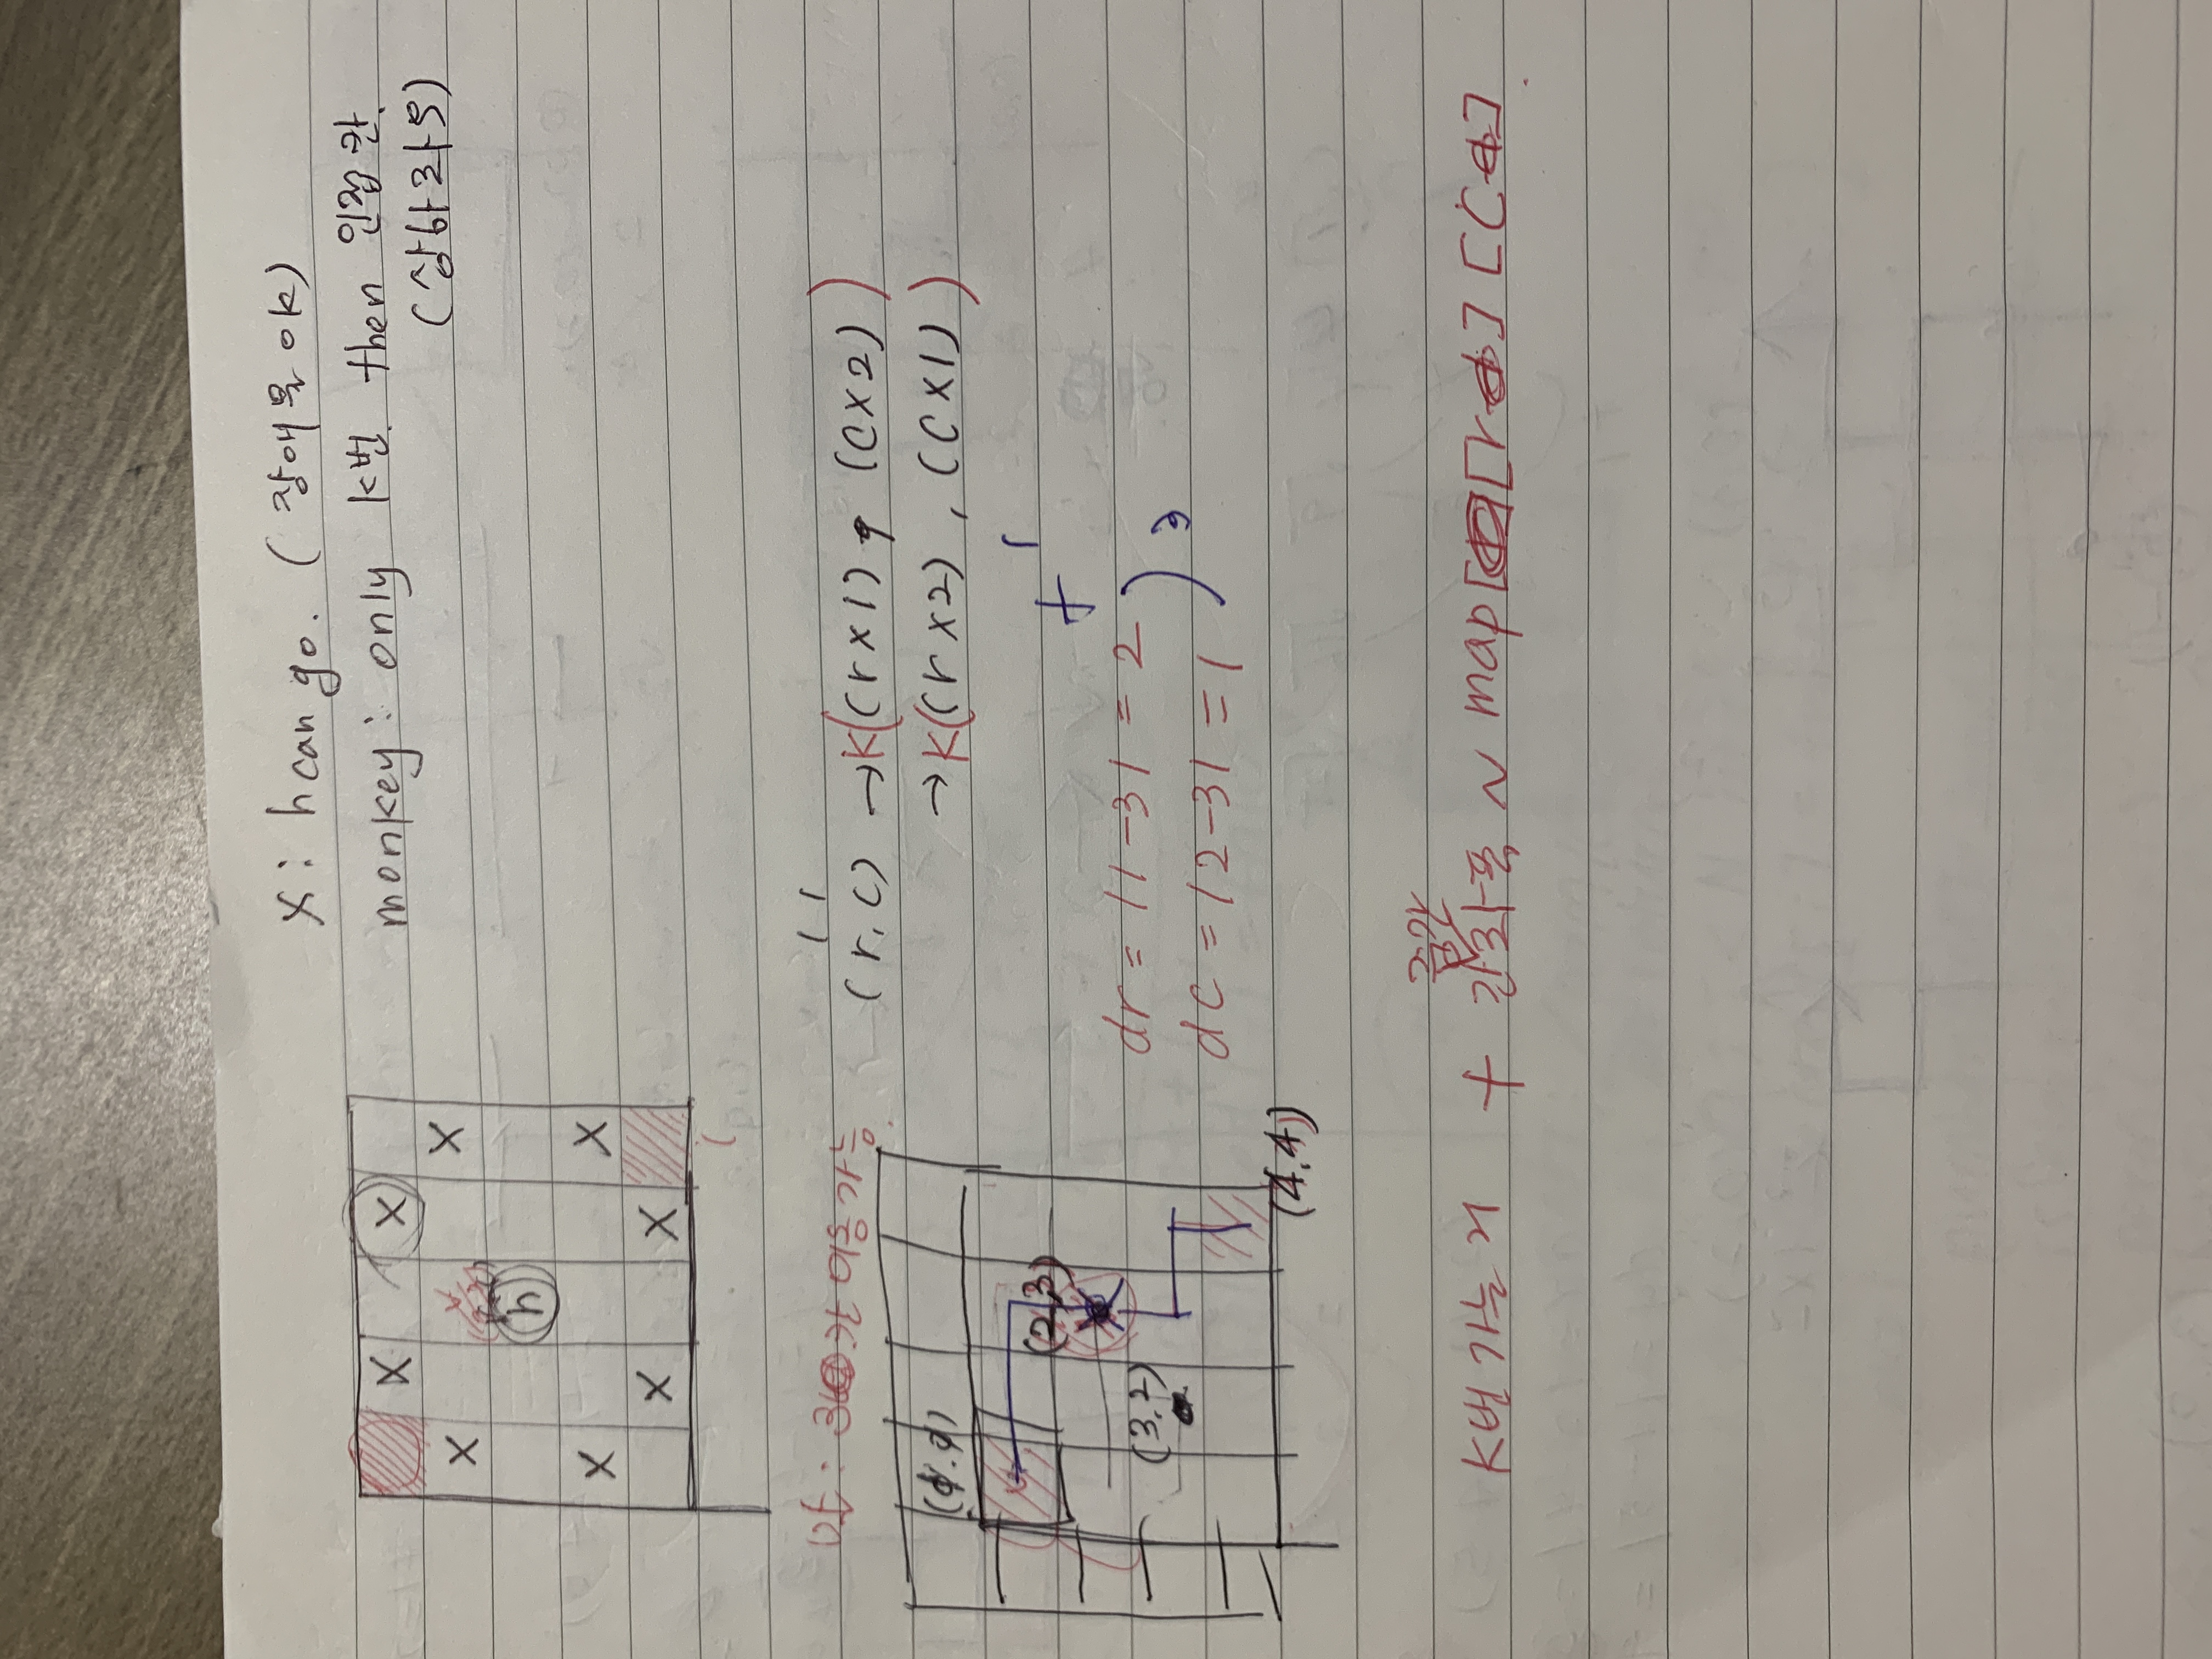 X : h can go. ( 장애물 OK)
monkey : only K번 then 인접 칸.
(상하좌우)
X X
X X
h
X X
X X
말 : 3칸 이동 가능.
(r, c) → K((r x 1) , (C x 2))
→ K((r x 2) , (C x 1))
(2,3)
(3,2)
(4,4)
+ 1
dr = |1-3| = 2
dc = |2-3| = 1
) 3
중간
K번 가는 거 + 간 좌표 ~ map [r] [C]